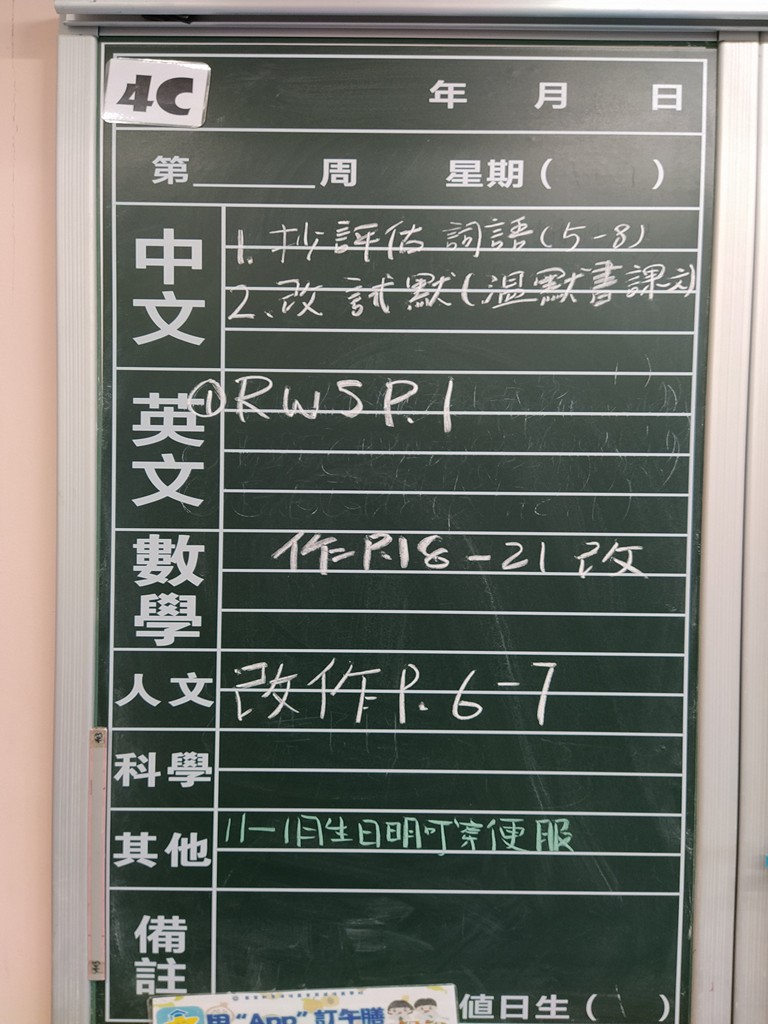 4C
年 月 日
第____周 星期( )
中文
1. 抄評估詞語(5-8)
2. 改試默(溫默書課文)
英文
① RWS P.1
數學
作二P.18-21 改
人文
改作P.6-7
科學
其他
11-1月生日明可穿便服
備註
用"App"訂午膳
值日生( )